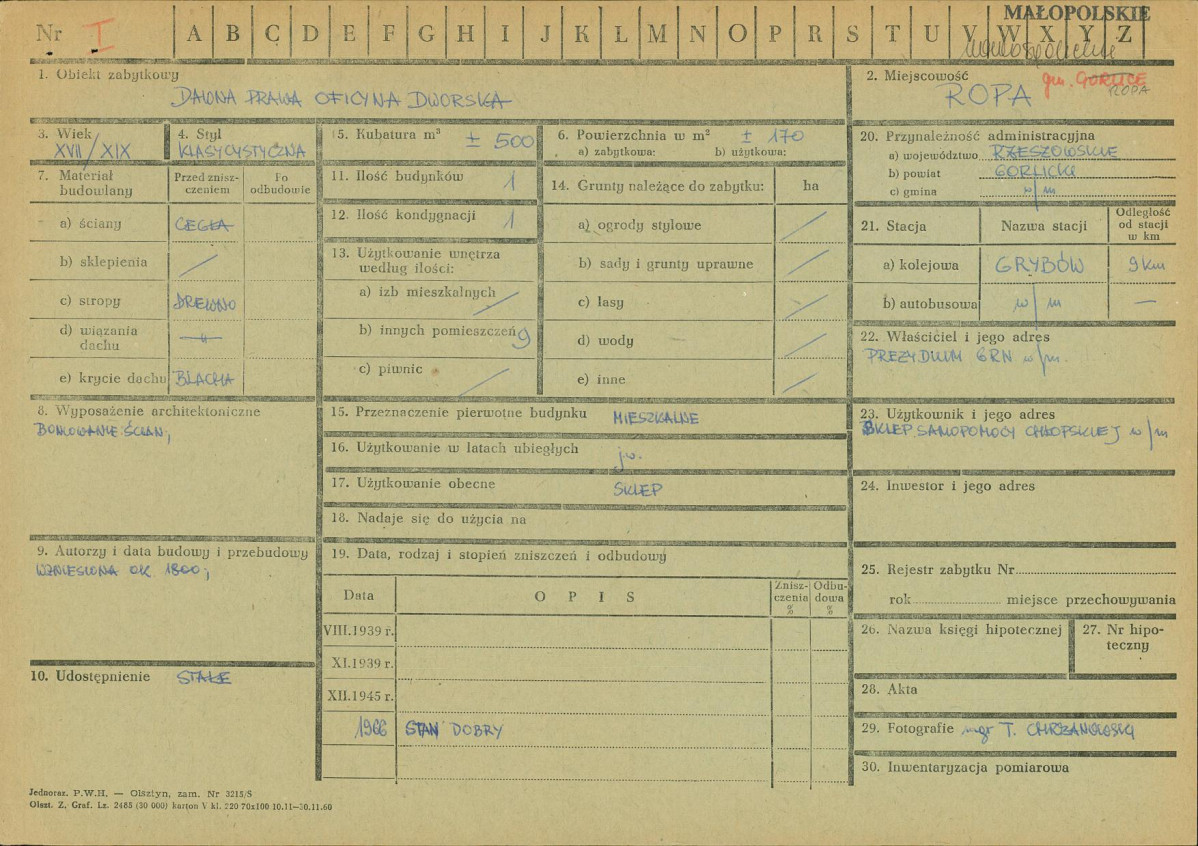 MAŁOPOLSKIE
Nr I A B C D E F G H I J K L M N O P R S T U V W X Y Z
1. Obiekt zabytkowy
DAWNA PRAWA OFICYNA DWORSKA
2. Miejscowość
ROPA gm. GORLICE
ROPA
3. Wiek
XVIII/XIX
4. Styl
KLASYCYSTYCZNA
5. Kubatura m³ ± 500
6. Powierzchnia w m² ± 170
a) zabytkowa: b) użytkowa:
7. Materiał budowlany
Przed zniszczeniem
Po odbudowie
a) ściany CEGŁA
b) sklepienia /
c) stropy DREWNO
d) wiązania dachu —"—
e) krycie dachu BLACHA
8. Wyposażenie architektoniczne
BONIOWANIE ŚCIAN;
9. Autorzy i data budowy i przebudowy
WZNIESIONA OK 1800;
10. Udostępnienie STAŁE
11. Ilość budynków 1
12. Ilość kondygnacji 1
13. Użytkowanie wnętrza według ilości:
a) izb mieszkalnych /
b) innych pomieszczeń 9
c) piwnic /
14. Grunty należące do zabytku: ha
a) ogrody stylowe /
b) sady i grunty uprawne /
c) lasy /
d) wody /
e) inne /
15. Przeznaczenie pierwotne budynku MIESZKALNE
16. Użytkowanie w latach ubiegłych j.w.
17. Użytkowanie obecne SKLEP
18. Nadaje się do użycia na
19. Data, rodzaj i stopień zniszczeń i odbudowy
Data O P I S Zniszczenia % Odbudowa %
VIII.1939 r.
XI.1939 r.
XII.1945 r.
1966 STAN DOBRY
20. Przynależność administracyjna
a) województwo RZESZOWSKIE
b) powiat GORLICKI
c) gmina w/m
21. Stacja Nazwa stacji Odległość od stacji w km
a) kolejowa GRYBÓW 9 km
b) autobusowa w/m —
22. Właściciel i jego adres
PREZYDIUM GRN w/m.
23. Użytkownik i jego adres
SKLEP SAMOPOMOCY CHŁOPSKIEJ w/m
24. Inwestor i jego adres
25. Rejestr zabytku Nr
rok miejsce przechowywania
26. Nazwa księgi hipotecznej
27. Nr hipoteczny
28. Akta
29. Fotografie mgr T. CHRZANOWSKI
30. Inwentaryzacja pomiarowa
Jednoraz. P.W.H. — Olsztyn, zam. Nr 3215/S
Olszt. Z. Graf. Lz. 2485 (30 000) karton V kl. 220 70x100 10.11—30.11.60